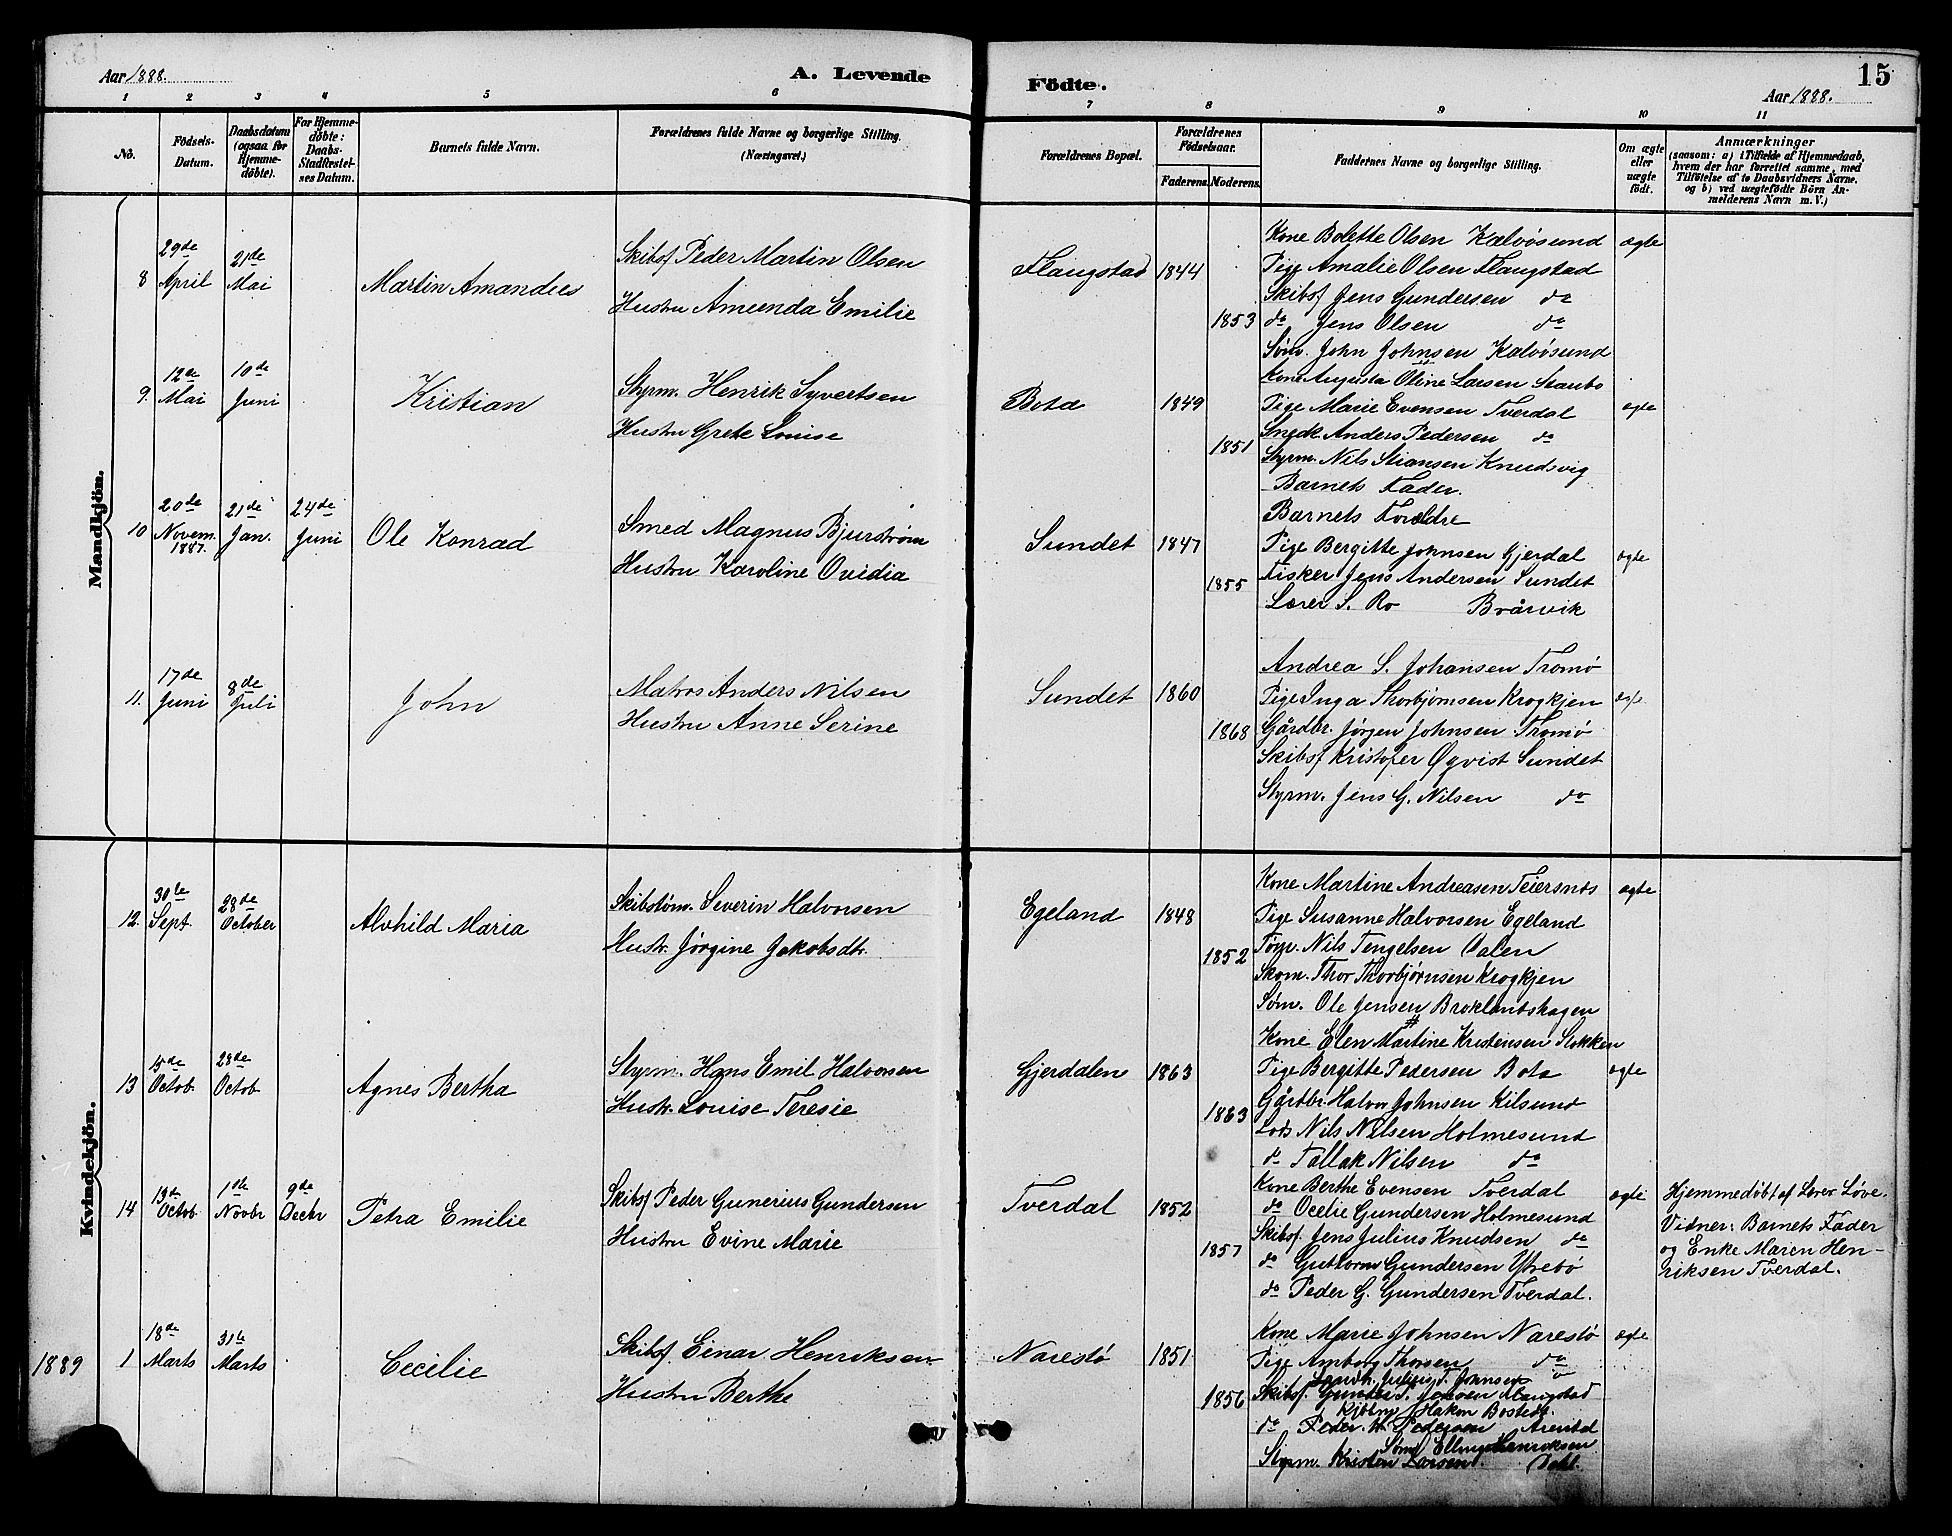 15
Aar 1888.
A. Levende
Födte.
Aar 1888.
1 2 3 4 5 6 7 8 9 10 11
No.
Födsels-Datum.
Daabsdatum (ogsaa for Hjemmedöbte).
For Hjemmedöbte: Daabs-Stadfæstelses Datum.
Barnets fulde Navn.
Forældrenes fulde Navne og borgerlige Stilling. (Næringsvei.)
Forældrenes Bopæl.
Forældrenes Födselsaar.
Faderens. Moderens.
Faddernes Navne og borgerlige Stilling.
Om ægte eller uægte födt.
Anmærkninger
(saasom: a) i Tilfælde af Hjemmedaab, hvem der har forrettet samme, med Tilföielse af to Daabsvidners Navne. og b) ved uægtefödte Börn Anmelderens Navn m.V.)
Mandkjön.
8 29de April 21de Mai
Martin Amandus
Skibsf Peder Martin Olsen
Hustru Amunda Emilie
Flaugstad 1844 1853
Kone Bolette Olsen Kalvøsund
Pige Amalie Olsen Flaugstad
Skibsf Jens Gundersen do
do Jens Olsen do
Søm. John Johnsen Kalvøsund
ægte
9. 12de Mai 10de Juni
Kristian
Styrm. Henrik Syvertsen
Hustru Grete Louise
Bota 1849 1851
Kone Augusta Oline Larsen Staubo
Pige Marie Evensen Tverdal
Snedk Anders Pedersen do
Styrm. Nils Stiansen Knudsvig
Barnets Fader.
ægte
10 20de Novem. 1887. 21de Jan. 24de Juni
Ole Konrad
Smed Magnus Bjurstrøm
Hustru Karoline Ovidia
Sundet 1847 1855
Barnets Forældre
Pige Bergitte Johnsen Gjerdal
Fisker Jens Andersen Sundet
Lærer S. Ro Bråvik
ægte
11. 17de Juni 8de Juli
John
Matros Anders Nilsen
Hustru Anne Serine
Sundet 1860 1868
Andrea S. Johansen Tromø
Pige Inga Thorbjørnsen Krogkjen
Gårdbr. Jørgen Johnsen Tromø
Skibsf Kristofer Øqvist Sundet
Styrm. Jens G. Nilsen do
ægte
Kvindekjön.
12. 30te Sept. 28de October
Alvhild Maria
Skibstøm. Severin Halvorsen
Hustr. Jørgine Jakobsdtr.
Egeland 1848 1852
Kone Martine Andreasen Teiersnes
Pige Susanne Halvorsen Egeland
Tøm. Nils Tengelsen Dalen
Skom. Thor Thorbjørnsen Krogkjen
Søm. Ole Jensen Broklandshagen
ægte
13 5de Octob. 28de Octob
Agnes Bertha
Styrm. Hans Emil Halvorsen
Hustr. Louise Teresie
Gjerdalen 1863 1863
Kone Elen Martine Kristensen Slokken
Pige Bergitte Pedersen Bota
Gårdbr. Halvor Johnsen Kilsund
Lods Nils Nilsen Holmesund
do Tallak Nilsen do
ægte
14 13de Octob. 1ste Novbr 9de Decbr
Petra Emilie
Skibsf Peder Gunerius Gundersen
Hustru Evine Marie
Tverdal 1852 1857
Kone Berthe Evensen Tverdal
do Ocelie Gundersen Holmesund
Skibsf. Jens Julius Knudsen do
do Guttorm Gundersen Ytrebø
do Peder G. Gundersen Tverdal.
ægte
Hjemmedøbt af Lærer Løve.
Vidner: Barnets Fader
og Enke Maren Hen-
riksen Tverdal.
1889
1 18de Marts 31te Marts
Cecilie
Skibsf. Einar Henriksen
Hustru Berthe
Narestø 1851 1856
Kone Marie Johnsen Narestø
Pige Amborg Thorsen do
Julius T. Johnsen
Skibsf. Flaugstad
Hakon Bostedt.
do Peder Pedersen Arendal
Søm Elling Henriksen
Styrm. Kristen Larsen
ægte